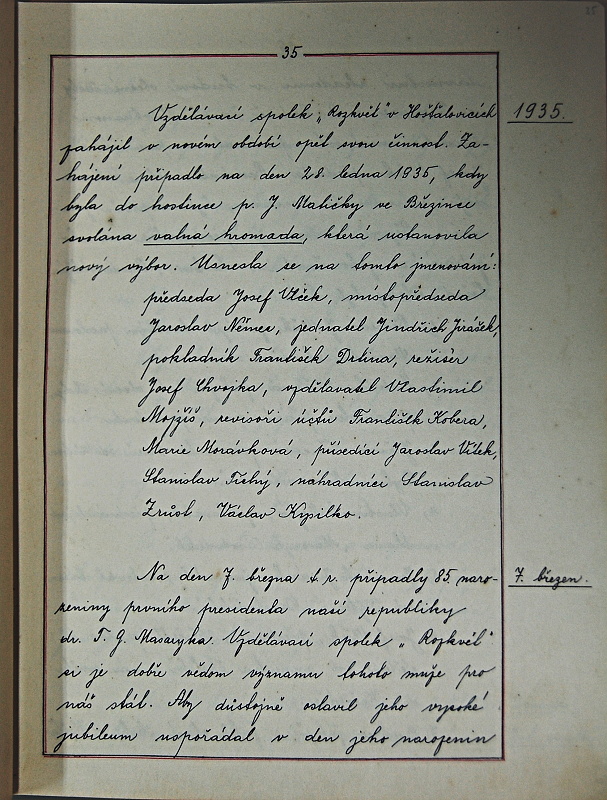 35
Vzdělávací spolek „Rozkvět" v Hošťalovicích
1935.
zahájil v novém období opět svou činnost. Za-
hájení připadlo na den 28. ledna 1935, kdy
byla do hostince p. J. Matičky ve Březince
svolána valná hromada, která ustanovila
nový výbor. Usnesla se na tomto jmenování:
předseda Josef Vlček, místopředseda
Jaroslav Němec, jednatel Jindřich Jirášek,
pokladník František Drtina, režisér
Josef Chvojka, vzdělavatel Vlastimil
Mojžíš, revisoři účtů František Kobera,
Marie Morávková, přísedící Jaroslav Vítek,
Stanislav Tichý, náhradníci Stanislav
Zrůst, Václav Kypilko.
Na den 7. března t. r. připadly 85. naro-
7. březen.
zeniny prvního presidenta naší republiky
dr. T. G. Masaryka. Vzdělávací spolek „Rozkvět"
si je dobře vědom významu tohoto muže pro
náš stát. Aby důstojně oslavil jeho vysoké
jubileum uspořádal v den jeho narozenin